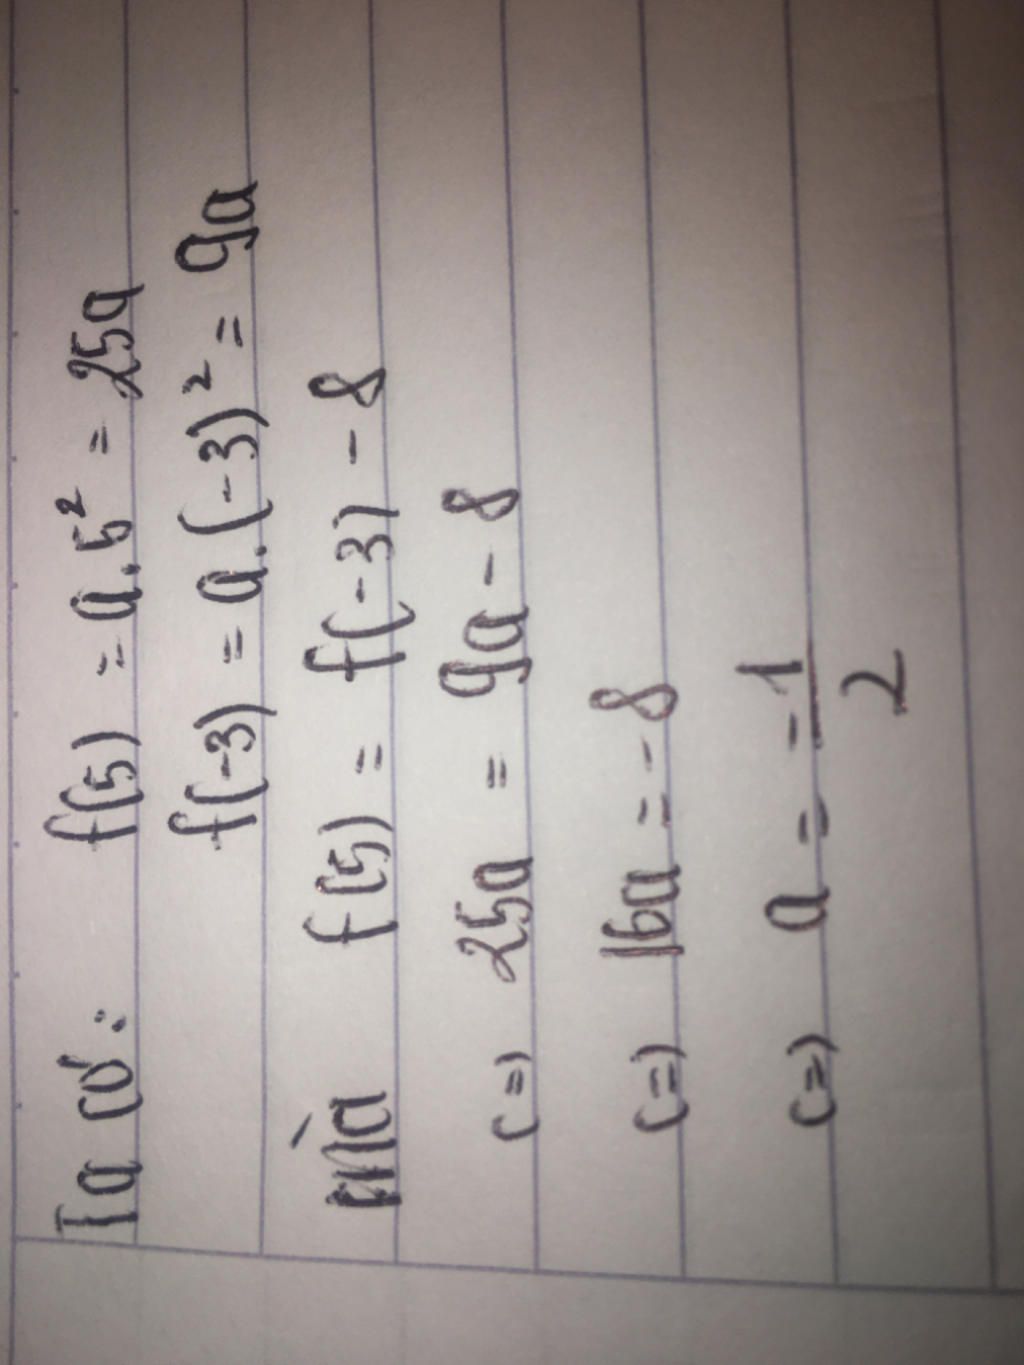 Ta có: f(5) = a.5² = 25a
f(-3) = a.(-3)² = 9a
mà f(5) = f(-3) - 8
(=) 25a = 9a - 8
(=) 16a = -8
(=) a = -1/2